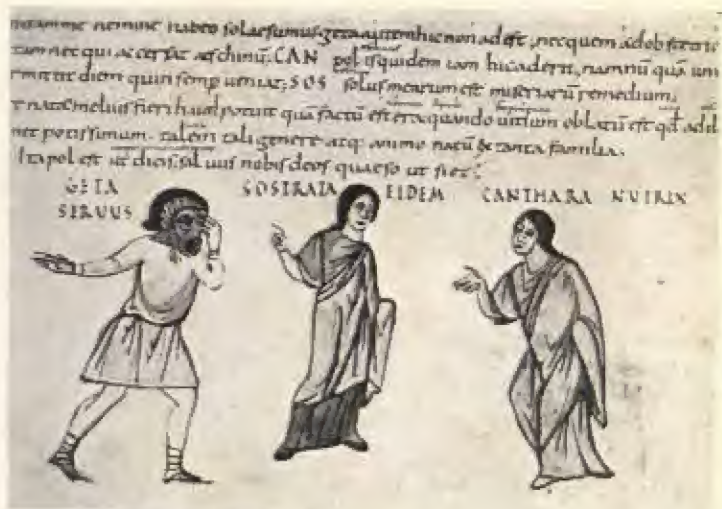 neminem habeo solae sumus. geta autem hic non adest; nec quem ad obstetri
tam nec qui accersat aeschinu; CAN pol is quidem iam hic aderit, nam nu quā um
mittit diem quin semp ueniat; SOS solus mearum est miseriarū remedium,
e nata melius fieri haud potuit quā factū est era quando uitium oblatū est qđ ad il
net potissimum. talem tali genere atq; animo natū & tanta familia.
Ita pol est ut dicis; saluus nobis deos quaeso ut siet;
GETA SOSTRATA EIDEM CANTHARA NUTRIX
SERUUS